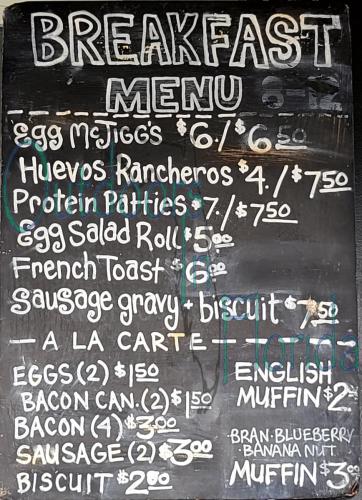 BREAKFAST
MENU 8-12
Egg McJigg's $6./$6.50
Huevos Rancheros $4./$7.50
Protein Patties $7./$7.50
Egg Salad Roll $5.00
French Toast $6.00
Sausage gravy + biscuit $7.50
— A LA CARTE —
EGGS (2) $1.50
BACON CAN. (2) $1.50
BACON (4) $3.00
SAUSAGE (2) $3.00
BISCUIT $2.00
ENGLISH
MUFFIN $2
BRAN·BLUEBERRY
BANANA NUT
MUFFIN $3
Outdoors
Florida